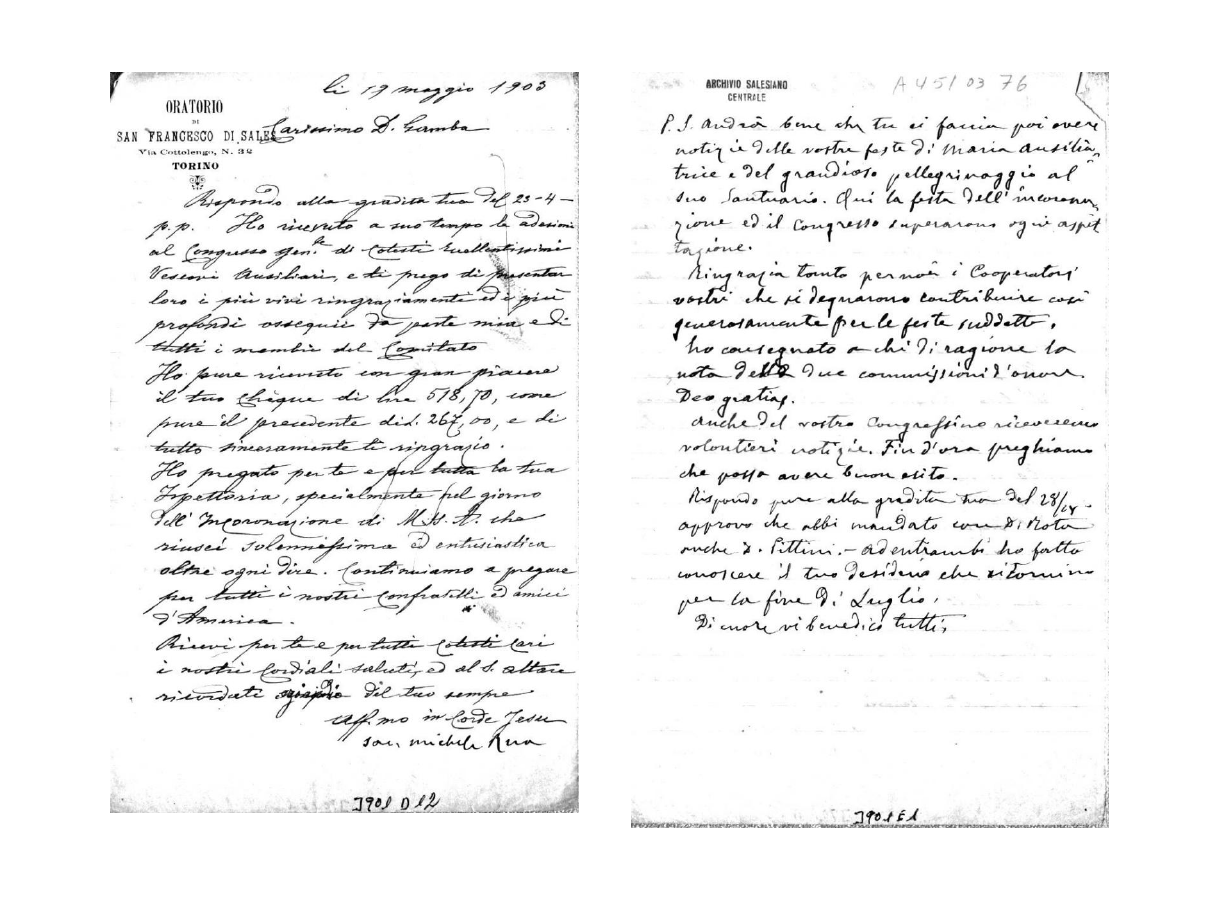 li 19 maggio 1903
ORATORIO
DI
SAN FRANCESCO DI SALES
Via Cottolengo, N. 32
TORINO
Carissimo D. Gamba
Rispondo alla gradita tua del 23-4-
p.p. Ho ricevuto a suo tempo le adesioni
al Congresso Gen.le di Cotesti Eccellentissimi
Vescovi Ausiliari, e ti prego di presentar
loro i più vivi ringraziamenti ed i più
profondi ossequii da parte mia e di
tutti i membri del Comitato
Ho pure ricevuto con gran piacere
il tuo chèque di lire 518,70, come
pure il precedente di d. 267,00, e di
tutto sinceramente ti ringrazio.
Ho pregato per te e per tutta la tua
Ispettoria, specialmente nel giorno
dell'Incoronazione di M. A. che
riuscì solennissima ed entusiastica
oltre ogni dire. Continuiamo a pregare
per tutti i nostri Confratelli ed amici
d'America.
Ricevi per te e per tutti cotesti cari
i nostri cordiali saluti, ed al S. altare
ricordati del tuo sempre
Aff.mo in Corde Jesu
Sac. Michele Rua
J901 D 12
ARCHIVIO SALESIANO
CENTRALE
A 451 03 76
P. S. Andrà bene che tu ci faccia poi avere
notizie delle vostre feste di Maria Ausilia
trice e del grandioso pellegrinaggio al
suo Santuario. Qui la festa dell'incorona
zione ed il Congresso superarono ogni aspet
tazione.
Ringrazia tanto per noi i Cooperatori
vostri che si degnarono contribuire così
generosamente per le feste suddette.
ho consegnato a chi di ragione la
nota delle due commissioni d'onore.
Deo gratias.
Anche del vostro Congressino riceveremo
volontieri notizie. Fin d'ora preghiamo
che possa avere buon esito.
Rispondo pure alla gradita tua del 28/4-
approvo che abbi mandato con D. Rota
anche D. Pittini. - Ad entrambi ho fatto
conoscere il tuo desiderio che ritornino
per la fine di Luglio.
Di cuore vi benedico tutti.
J901 E 1